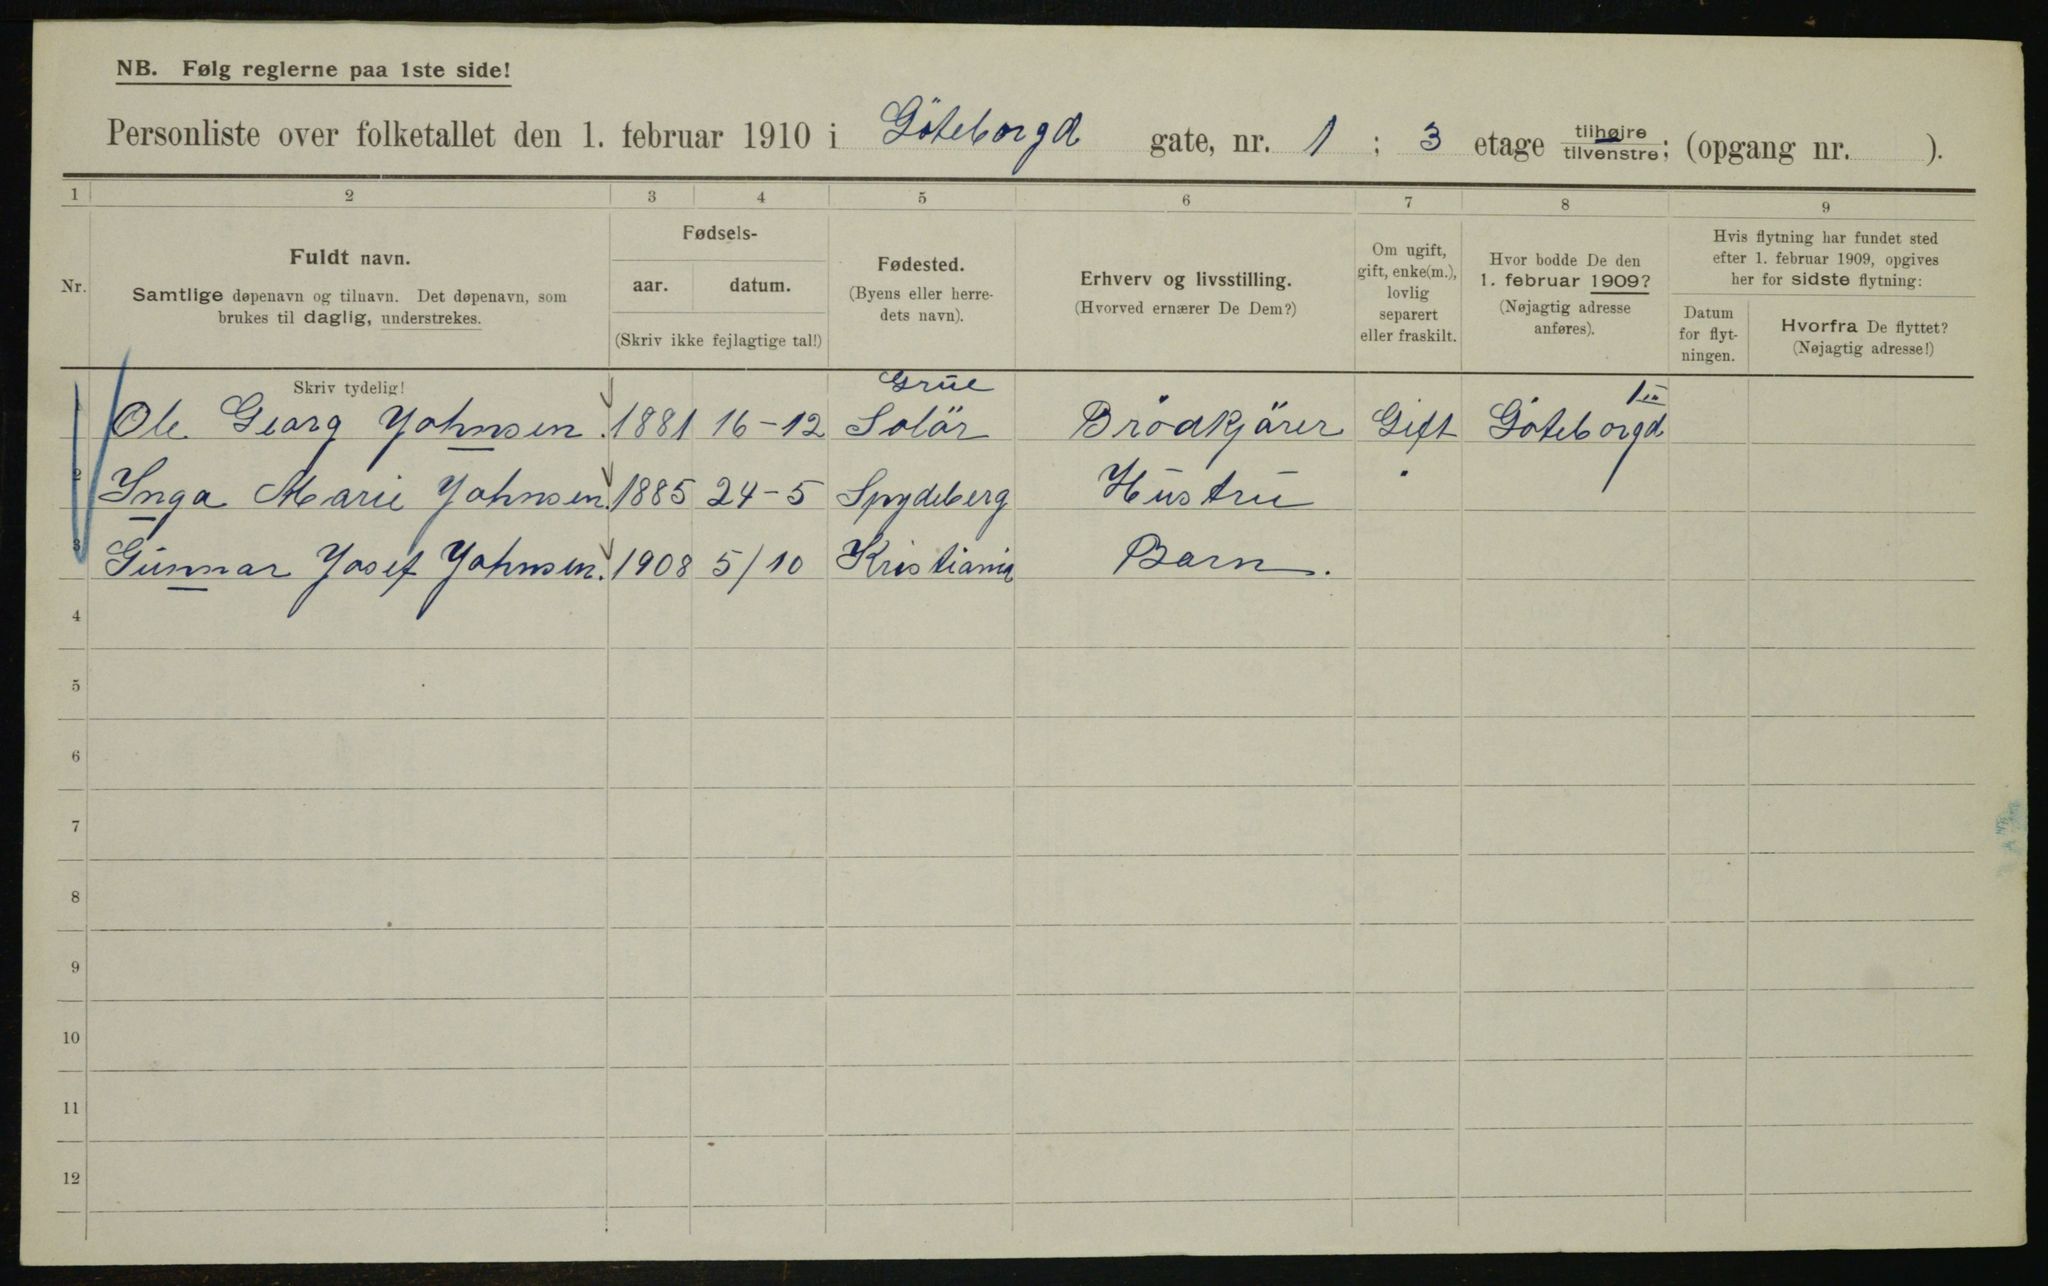 NB. Følg reglerne paa 1ste side!
Personliste over folketallet den 1. februar 1910 i Göteborgd gate, nr. 1 ; 3 etage tilhøjre tilvenstre; (opgang nr. ).
1 2 3 4 5 6 7 8 9
Nr.
Fuldt navn.
Samtlige døpenavn og tilnavn. Det døpenavn, som
brukes til daglig, understrekes.
Fødsels-
aar. datum.
(Skriv ikke fejlagtige tal!)
Fødested.
(Byens eller herre-
dets navn).
Erhverv og livsstilling.
(Hvorved ernærer De Dem?)
Om ugift,
gift, enke(m.),
lovlig
separert
eller fraskilt.
Hvor bodde De den
1. februar 1909?
(Nøjagtig adresse
anføres).
Hvis flytning har fundet sted
efter 1. februar 1909, opgives
her for sidste flytning:
Datum
for flyt-
ningen.
Hvorfra De flyttet?
(Nøjagtig adresse!)
Skriv tydelig!
Grue
1 Ole Georg Yohnsen. 1881 16-12 Solör Brödkjörer Gift Göteborgd
2 Inga Marie Yohnsen. 1885 24-5 Spydeberg Hustru "
3 Gunnar Yosef Yohnsen. 1908 5/10 Kristiania Barn.
4
5
6
7
8
9
10
11
12